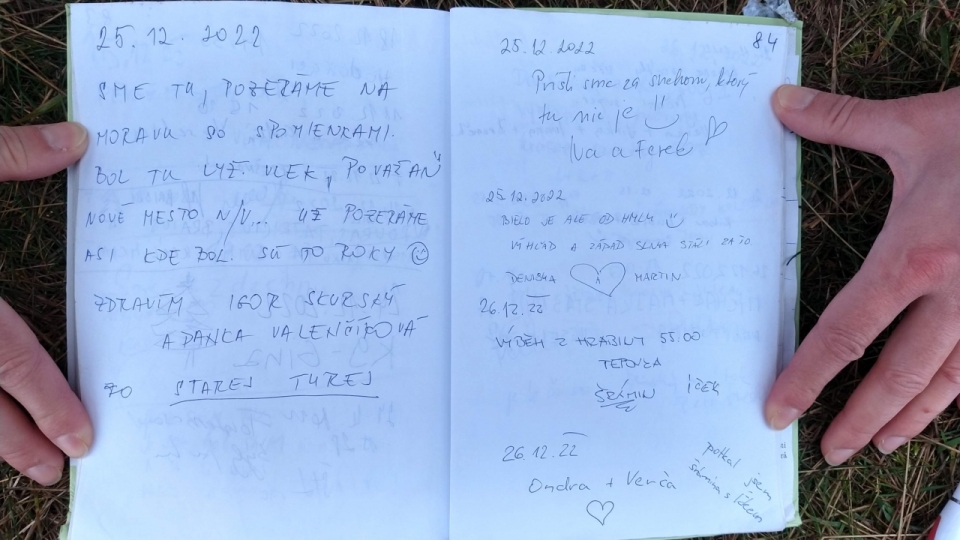 25.12.2022
SME TU, POZERÁME NA
MORAVU SO SPOMIENKAMI.
BOL TU LYŽ. VLEK, POVAŽAN
NOVÉ MESTO N/V... UŽ POZERÁME
ASI KDE BOL. SÚ TO ROKY ☺
ZDRAVÍM IGOR SKURSKÝ
A DANKA VALENČÍKOVÁ
ZO STAREJ TUREJ
84
25.12 2022
Prišli sme za snehom, ktorý
tu nie je
Iva a Ferek
25.12.2022
BIELO JE ALE OD HMLY
VÝHĽAD A ZÁPAD SLNKA STÁLI ZA TO.
DENISKA MARTIN
26.12.22
VÝBĚH Z HRABINY 55:00
ŠKÁMIN IČEK
26.12.22
Ondra + Verča
potkal jsem
s Íčkem